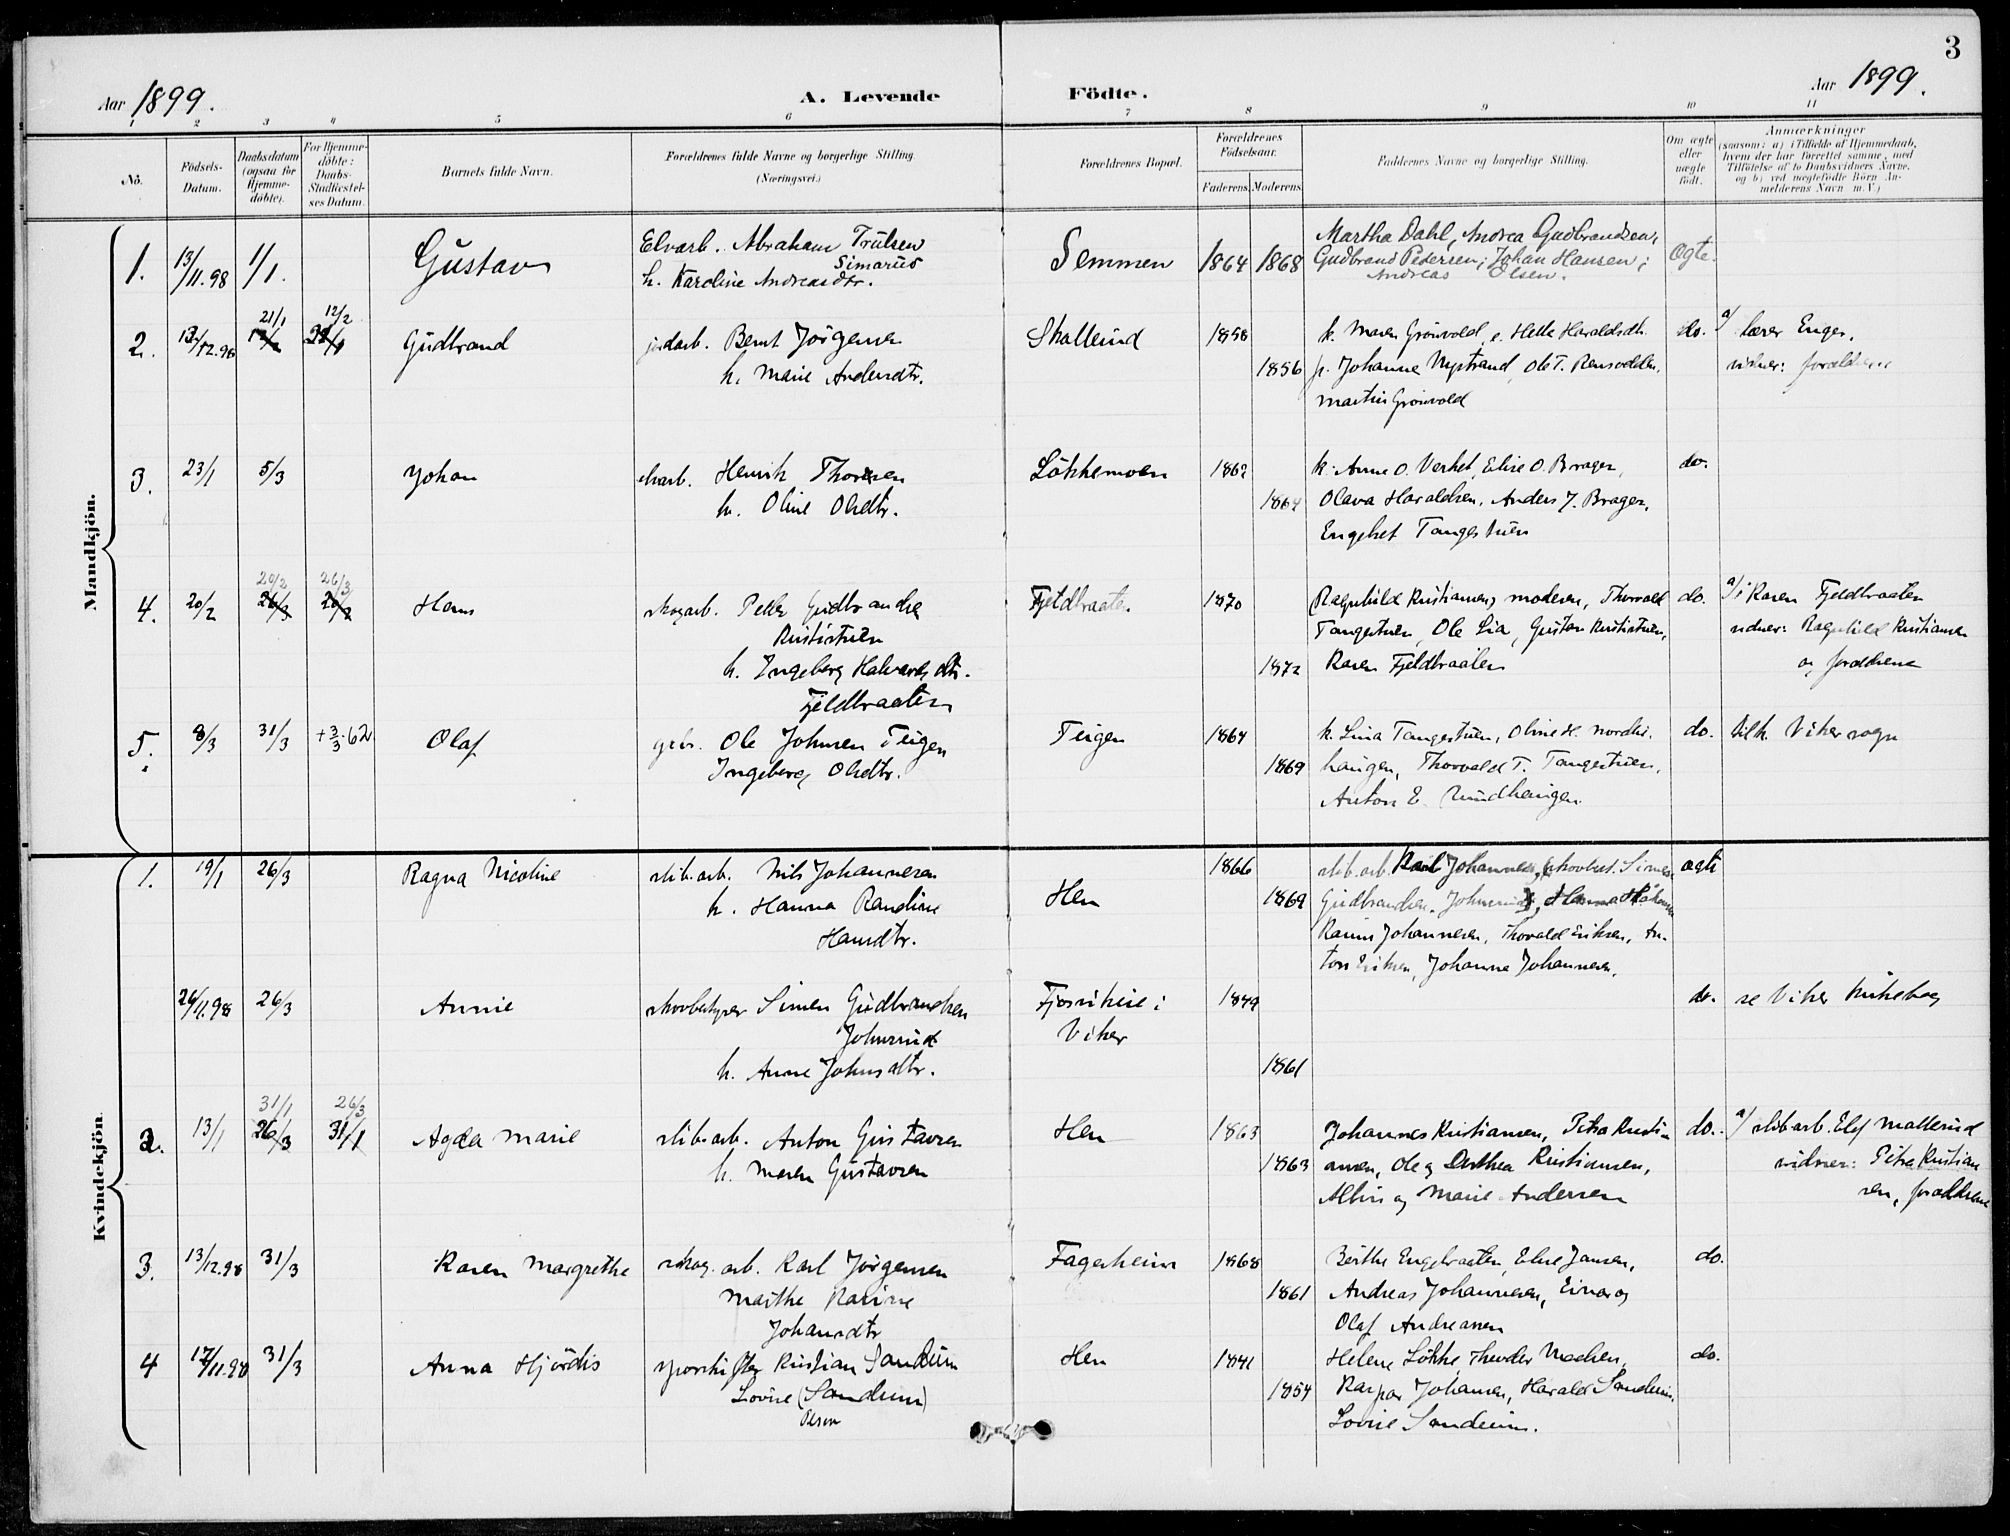 3
Aar 1899.
A. Levende Födte.
Aar 1899.
1 2 3 4 5 6 7 8 9 10 11
No.
Födsels-
Datum.
Daabsdatum
(ogsaa for
Hjemme-
döbte).
For Hjemme-
döbte:
Daabs-
Stadfæstel-
ses Datum.
Barnets fulde Navn.
Forældrenes fulde Navne og borgerlige Stilling
(Næringsvei.)
Forældrenes Bopæl.
Forældrenes
Födselsaar.
Faderens. Moderens.
Faddernes Navne og borgerlige Stilling.
Om ægte
eller
uægte
födt.
Anmærkninger
(saasom: a) i Tilfælde af Hjemmedaab,
hvem der har forrettet samme, med
Tilföielse af to Daabsvidners Navne,
og b) ved uægtefödte Börn An-
melderens Navn m. V.)
Mandkjön.
1. 13/11.98 1/1. Gustav Elvarb. Abraham Trulsen
Simarud
h. Karoline Andreasdtr.
Semmen 1864 1868
Martha Dahl, Andrea Gudbrandsen,
Gudbrand Pedersen, Johan Hansen,
Andreas Olsen.
Ogte.
2. 12/12.98 21/1 12/2 Gudbrand jordarb. Bernt Jörgensen
h. Marie Andersdtr.
Skallerud 1858
1856
k. Maren Grönvold, e. Helle Haraldsdtr.
p. Johanne Nystrand, Ole T. Rensvedden,
Martin Grönvold
do. a/ lærer Enger.
vidner: forældrene
3. 23/1 5/3 Johan elvarb. Henrik Thoresen
h. Oline Olsdtr.
Lökkemoen 1862
1864
k. Anne O. Verket, Elise O. Bragen,
Olava Haraldsen, Anders J. Bragen,
Engebret Tangestuen
do.
4. 20/2 20/2 26/3 Hans skogarb. Petter Gudbrandsen
Krististuen
h. Ingeborg Halvorsdtr.
Fjeldbraaten
Fjeldbraaten 1870
1872
Ragnhild Kristiansen, moderen, Thorvald
Tangestuen, Ole Lia, Gustav Krististuen,
Karen Fjeldbraaten
do. a/ Karen Fjeldbraaten
vidner: Ragnhild Kristiansen
og forældrene
5. 8/3 31/3 + 3/3-62 Olaf gbr. Ole Johnsen Teigen
Ingeborg Olsdtr.
Teigen 1864
1869
k. Lina Tangestuen, Oline H. Nordli-
haugen, Thorvald T. Tangestuen,
Anton E. Rundhaugen.
do. tilh. Viker sogn
Kvindekjön
1. 19/1 26/3 Ragna Nicoline slib.arb. Nils Johannesen
h. Hanna Randine
Hansdtr.
Hen 1866
1869
slib.arb. Karl Johannesen, skovbest. Simen
Gudbrandsen Johnsrud, Hanna
Karine Johannesen, Thorvald Eriksen, An-
ton Eriksen, Johanne Johannesen.
ægte
24/11.98 26/3 Annie skovbestyrer Simen Gudbrandsen
Johnsrud
h. Anne Johnsdtr.
i
Viker
1849
1861
do. se Viker kirkebog
2. 13/1 31/1 26/3 Agda Marie slib.arb. Anton Gustavsen
h. Maren Gustavsen
Hen 1863
1863
Johannes Kristiansen, Petra Kristi-
ansen, Ole og Dorthea Kristiansen,
Albin og Marie Andersen
do. a/ slib.arb. Elef Mallerud
vidner: Petra Kristian
sen, forældrene
3. 13/12.98 31/3 Karen Margrethe skog.arb. Karl Jörgensen
Marthe Karine
Johansdtr
Fagerheim 1868
1861
Berthe Engebraaten, Elise Jansen,
Andreas Johannesen, Einar og
Olaf Andreassen
do.
4 17/11.98 31/3 Anna Hjördis sporskifter Kristian Sandum
Lovise (Sandum)
Olsen
Hen 1841
1854
Helene Lökke, Theodor Madsen,
Kaspar Johansen, Harald Sandum,
Lovise Sandum.
do.